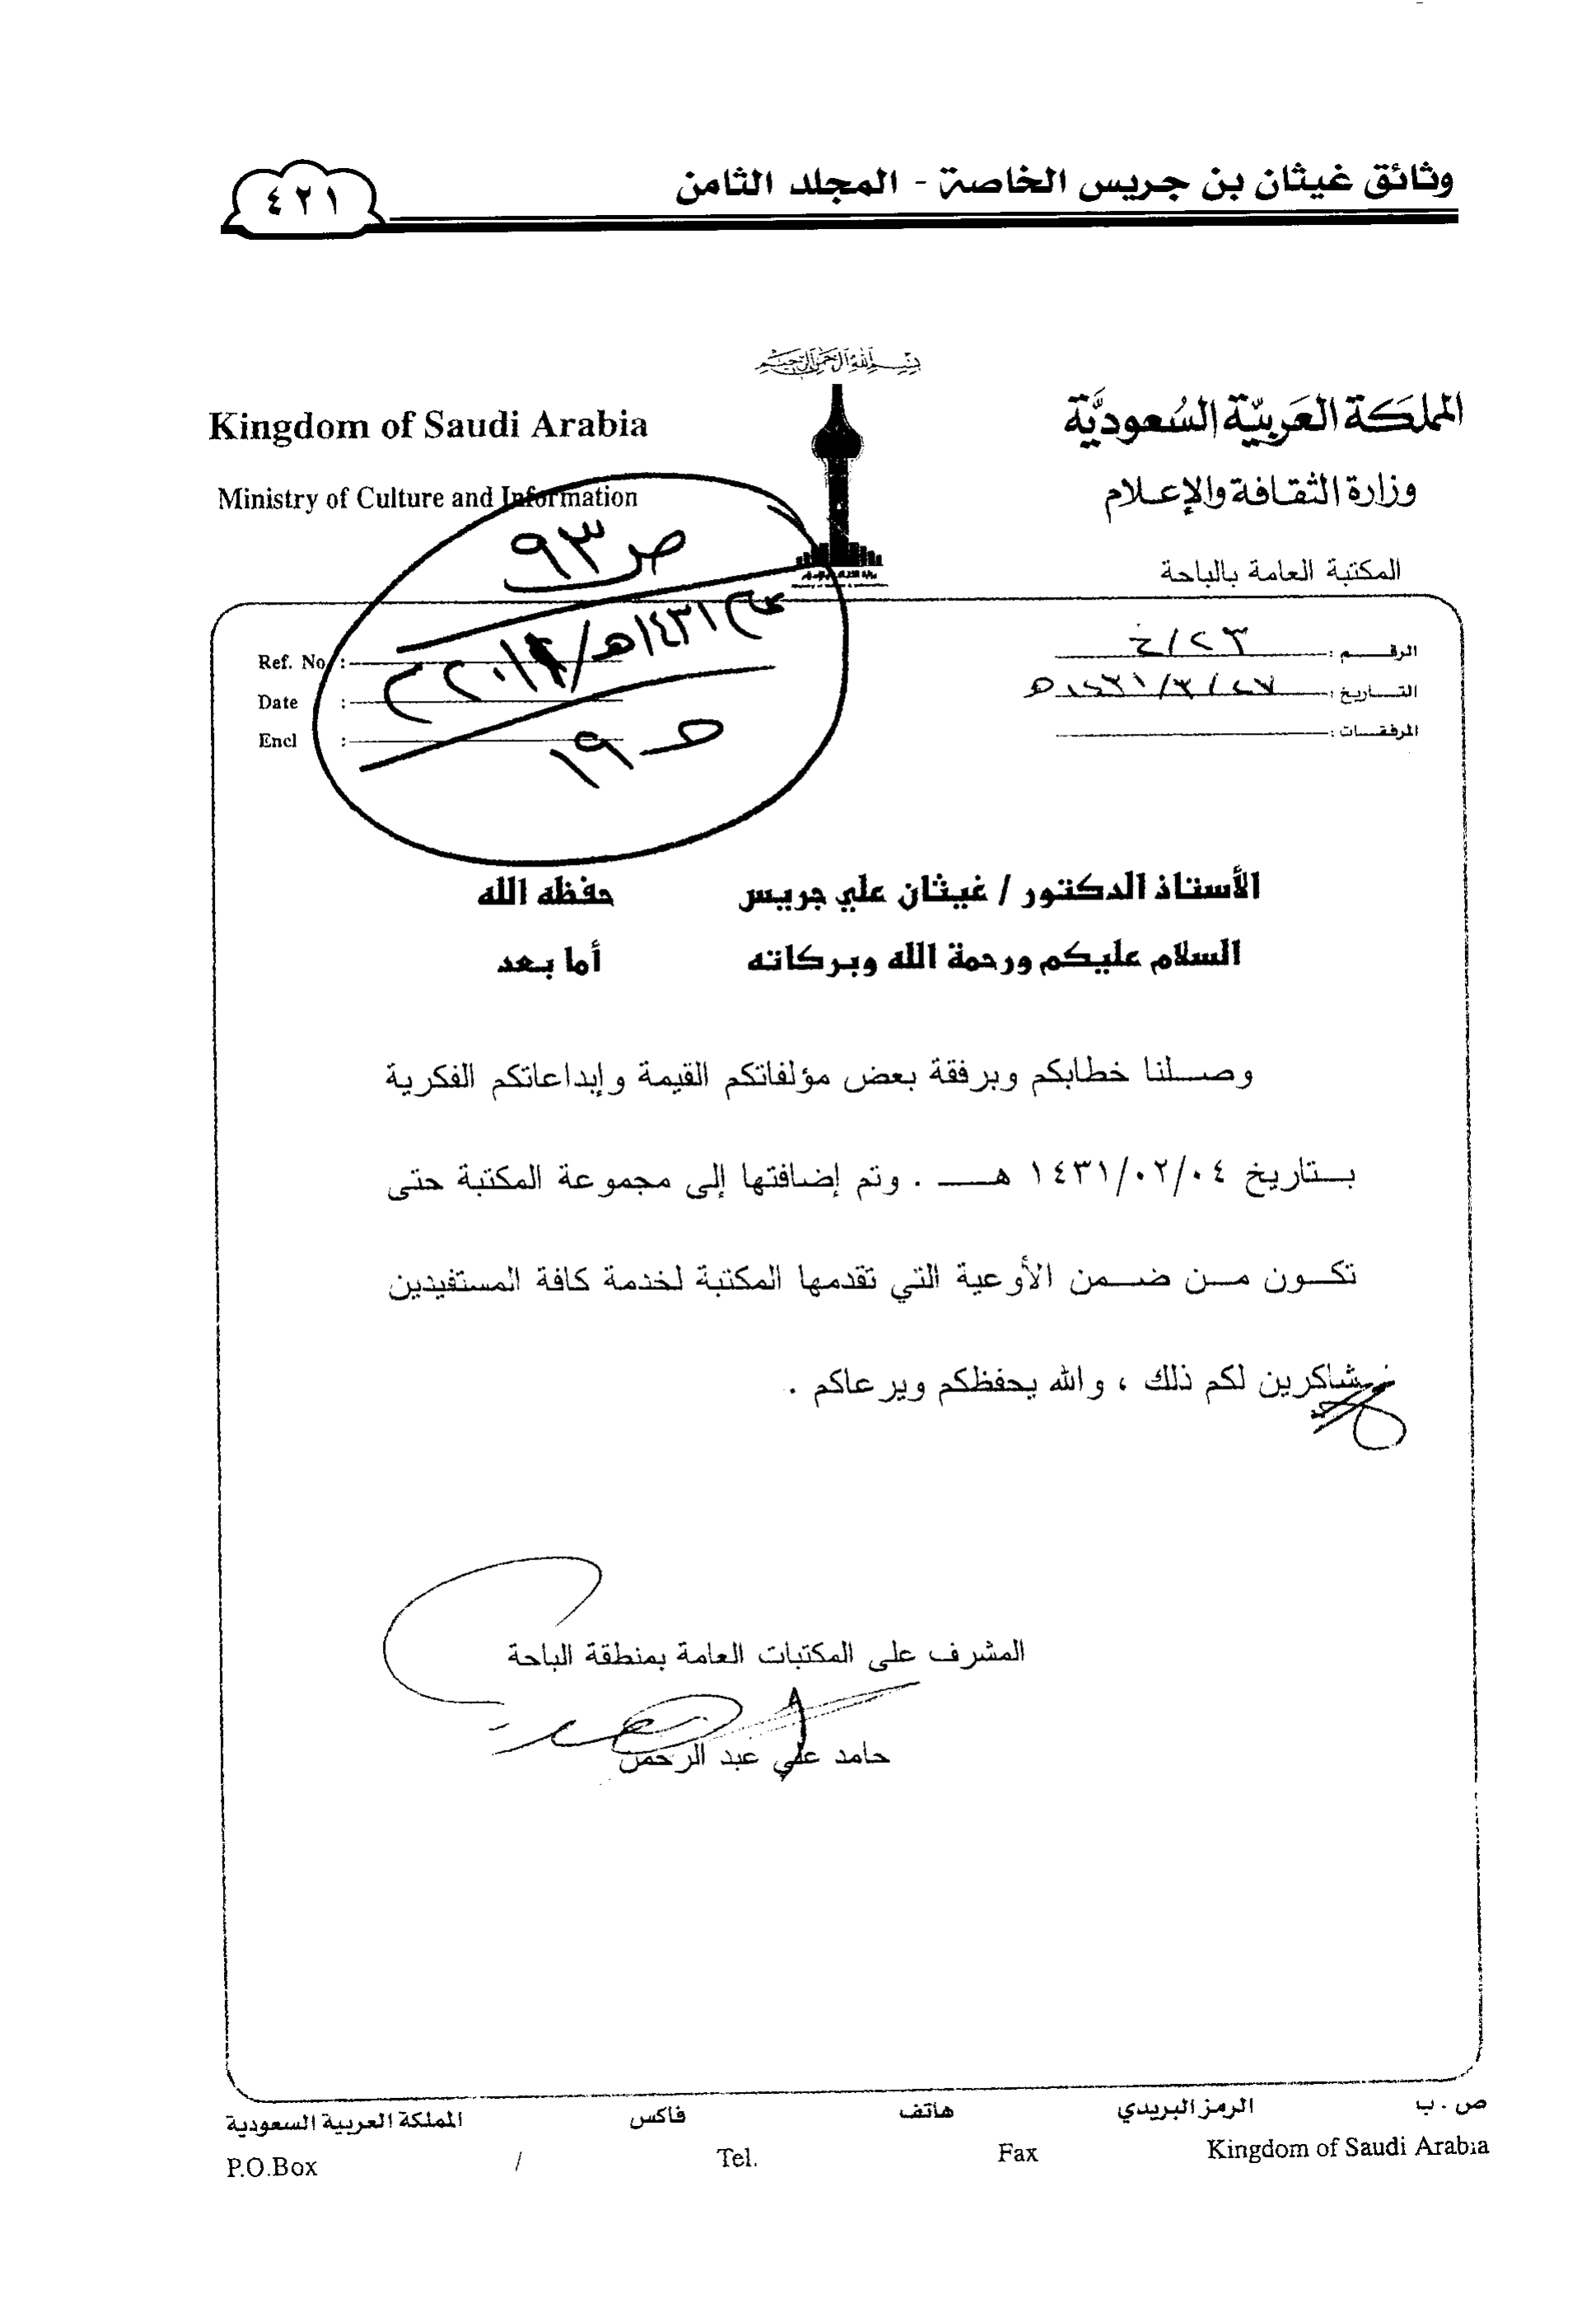 وثائق غيثان بن جريس الخاصة - المجلد الثامن
٤٢١
بسم الله الرحمن الرحيم
المملكة العربية السعودية
وزارة الثقافة والإعلام
المكتبة العامة بالباحة
Kingdom of Saudi Arabia
Ministry of Culture and Information
ص ٩٣
عام ١٤٣١هـ/
ص ١٩
الرقم : ٢٣/خ
التاريخ : ٢٧/٣/١٤٣١هـ
المرفقات :
Ref. No :
Date :
Encl :
الأستاذ الدكتور / غيثان علي جريس حفظه الله
السلام عليكم ورحمة الله وبركاته أما بعد
وصلنا خطابكم وبرفقة بعض مؤلفاتكم القيمة وإبداعاتكم الفكرية
بتاريخ ١٤٣١/٠٢/٠٤ هـ . وتم إضافتها إلى مجموعة المكتبة حتى
تكون من ضمن الأوعية التي تقدمها المكتبة لخدمة كافة المستفيدين
شاكرين لكم ذلك ، والله يحفظكم ويرعاكم .
المشرف على المكتبات العامة بمنطقة الباحة
حامد علي عبد الرحمن
ص . ب الرمز البريدي هاتف فاكس المملكة العربية السعودية
P.O.Box / Tel. Fax Kingdom of Saudi Arabia